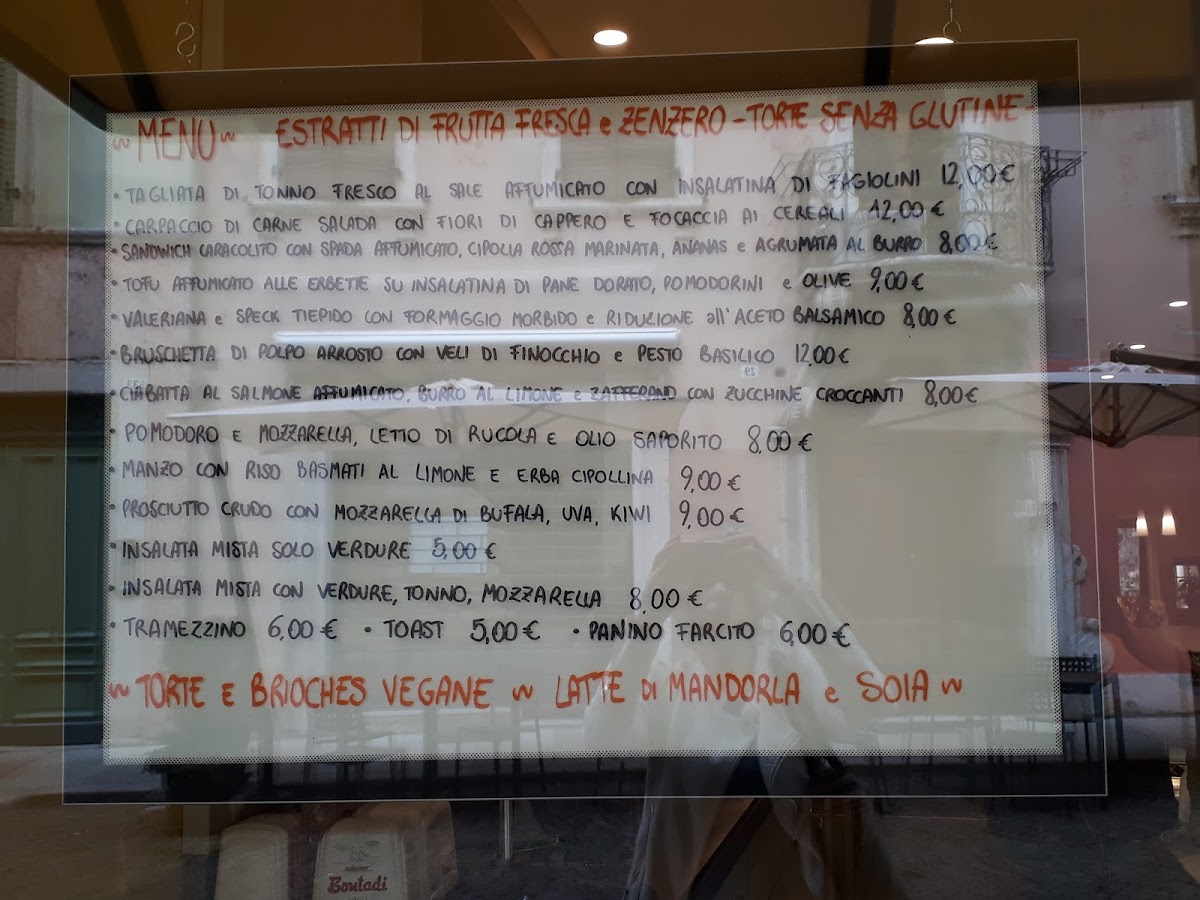 ~ MENU ~ ESTRATTI DI FRUTTA FRESCA e ZENZERO - TORTE SENZA GLUTINE -
• TAGLIATA DI TONNO FRESCO AL SALE AFFUMICATO CON INSALATINA DI FAGIOLINI 12,00 €
• CARPACCIO DI CARNE SALADA CON FIORI DI CAPPERO E FOCACCIA AI CEREALI 12,00 €
• SANDWICH CARACOLITO CON SPADA AFFUMICATO, CIPOLLA ROSSA MARINATA, ANANAS e AGRUMATA AL BURRO 8,00 €
• TOFU AFFUMICATO ALLE ERBETTE SU INSALATINA DI PANE DORATO, POMODORINI e OLIVE 9,00 €
• VALERIANA e SPECK TIEPIDO CON FORMAGGIO MORBIDO e RIDUZIONE all'ACETO BALSAMICO 8,00 €
• BRUSCHETTA DI POLPO ARROSTO CON VELI DI FINOCCHIO e PESTO BASILICO 12,00 €
• CIABATTA AL SALMONE AFFUMICATO, BURRO AL LIMONE e ZAFFERANO CON ZUCCHINE CROCCANTI 8,00 €
• POMODORO E MOZZARELLA, LETTO DI RUCOLA E OLIO SAPORITO 8,00 €
• MANZO CON RISO BASMATI AL LIMONE E ERBA CIPOLLINA 9,00 €
• PROSCIUTTO CRUDO CON MOZZARELLA DI BUFALA, UVA, KIWI 9,00 €
• INSALATA MISTA SOLO VERDURE 5,00 €
• INSALATA MISTA CON VERDURE, TONNO, MOZZARELLA 8,00 €
• TRAMEZZINO 6,00 € • TOAST 5,00 € • PANINO FARCITO 6,00 €
~ TORTE E BRIOCHES VEGANE ~ LATTE DI MANDORLA e SOIA ~
Bontadi